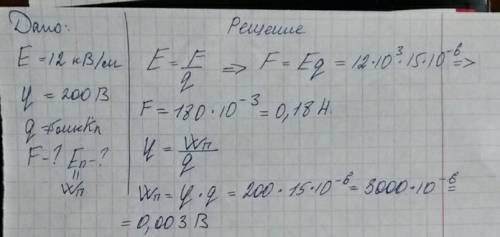 Дано:
Решение
E = 12 кВ/м
φ = 200 В
q = 15мкКл
F - ? Eп - ?
=
Wп
E = F/q => F = Eq = 12·10³·15·10⁻⁶ =>
F = 180·10⁻³ = 0,18 Н.
φ = Wп/q
Wп = φ·q = 200·15·10⁻⁶ = 3000·10⁻⁶ =
= 0,003 В